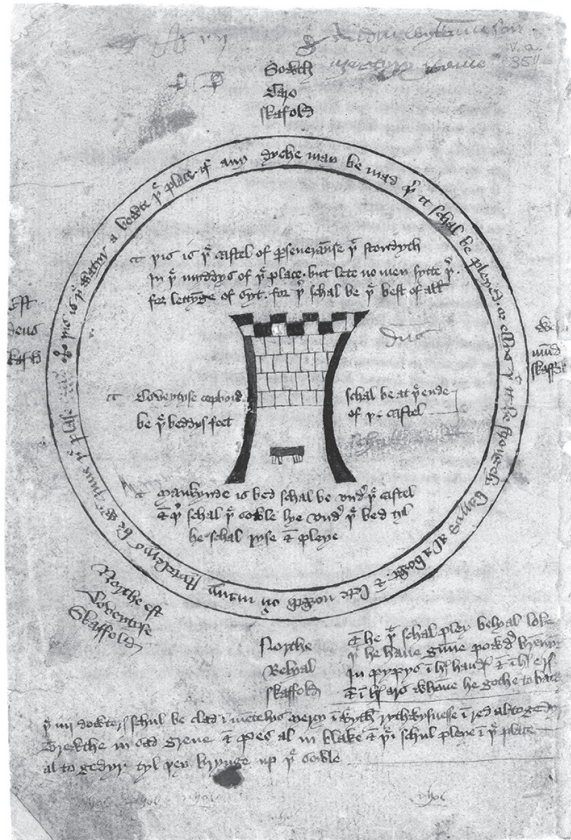 Sowth
Caro
skafold
þis is þe watyr a bowte þe place if any dyche may be mad þer it schal be pleyed or ellys þat it be strongely barryd al a bowt & lete nowth ouyr many stytelerys be wyth inne þe plase
þis is þe castel of perseueraunse þat stondyth
In þe myddys of þe place but lete no men sytte þer
for lettynge of syt for þer schal be þe best of all
Est
deus
skafold
mund
skaffold
Coveytyse copbord
be þe beddys feet
schal be at þe ende
of þe castel
Mankynde is bed schal be vndyr þe castel
& þer schal þe sowle lye vndyr þe bed tyl
he schal ryse & pleye
Northe est
Coveytyse
Skaffold
Northe
Belyal
skaffold
& he þat schal pley belyal loke
þat he haue gunne powdyr brenny
In pypys in hys hand & in hys ers
& in hys ars whanne he gothe to bata
þe iiij dowters schul be clad in mentelys Mercy in wyth rythwysnesse in red al togedyr
Trewthe in sad grene & Pes al in blake & þei schul pleye in þe place
al to gedyr tyl þey brynge up þe sowle